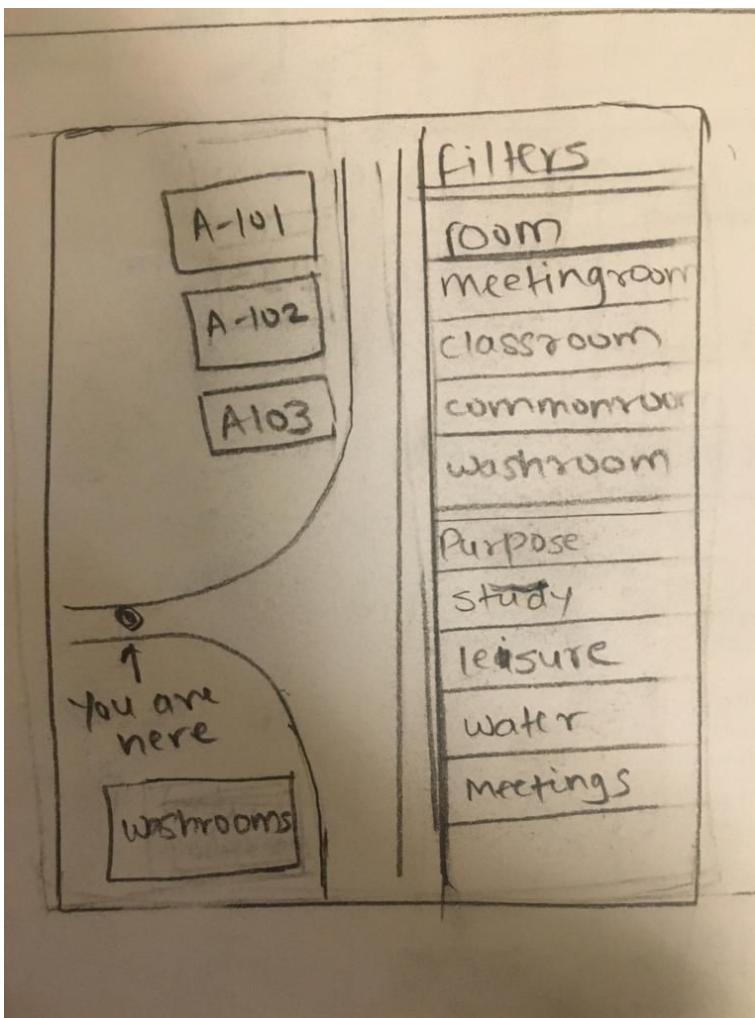 A-101
A-102
A103
You are
here
washrooms
filters
room
meetingroom
classroom
commonroo
washroom
Purpose
study
leisure
water
Meetings